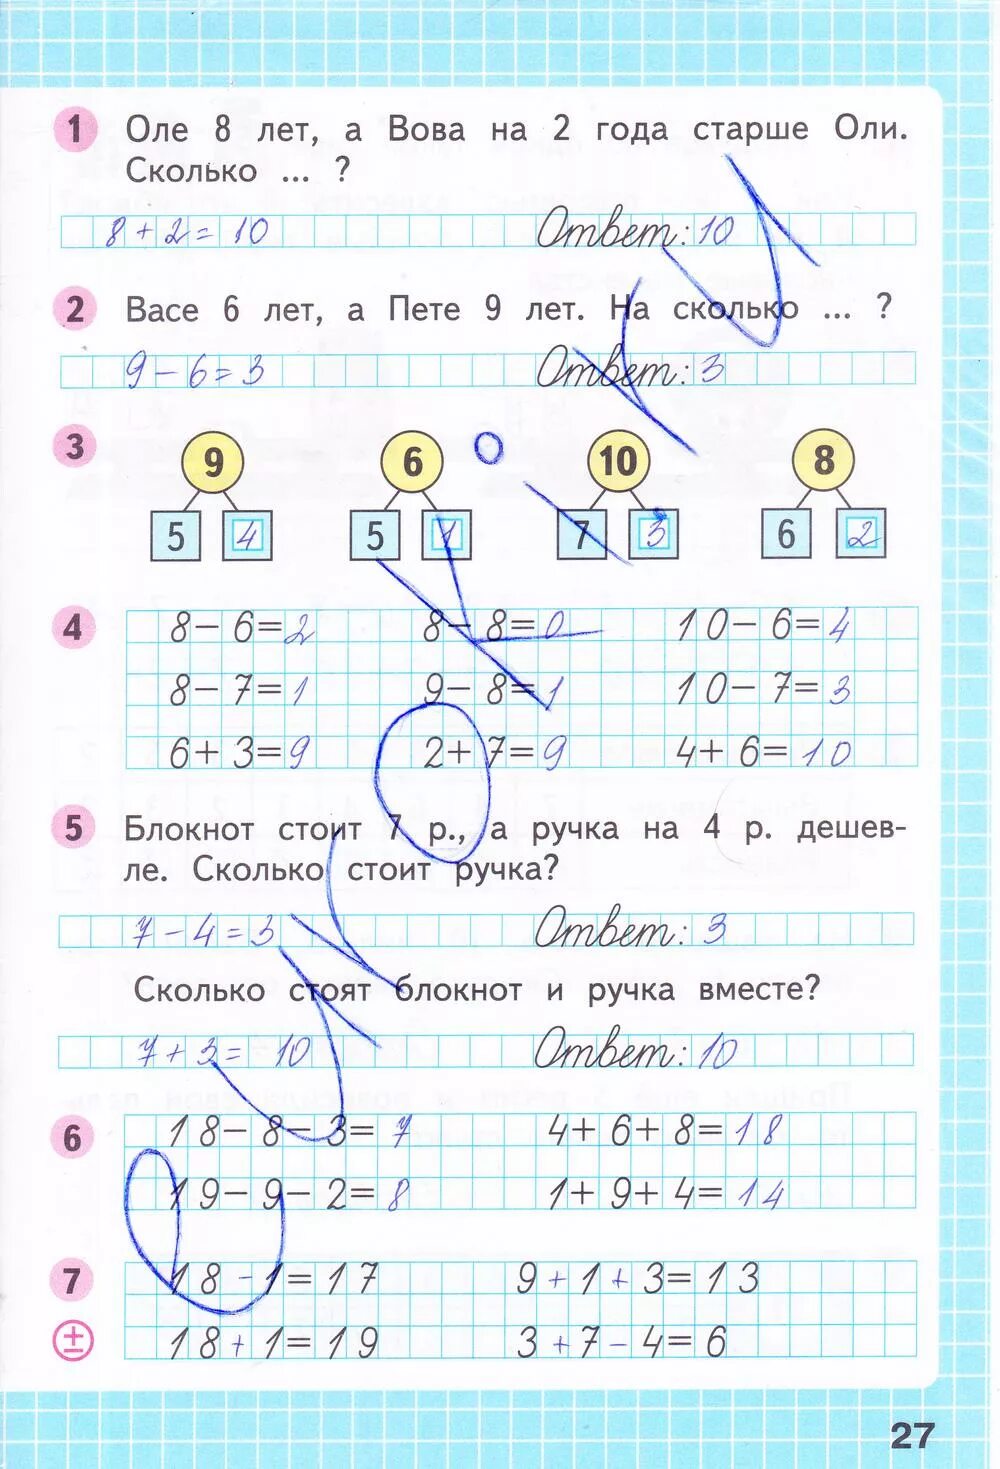 1 Оле 8 лет, а Вова на 2 года старше Оли.
Сколько ... ?
8 + 2 = 10 Ответ: 10
2 Васе 6 лет, а Пете 9 лет. На сколько ... ?
9 - 6 = 3 Ответ: 3
3 9 6 10 8
5 4 5 1 7 3 6 2
4 8 - 6 = 2 8 - 8 = 0 10 - 6 = 4
8 - 7 = 1 9 - 8 = 1 10 - 7 = 3
6 + 3 = 9 2 + 7 = 9 4 + 6 = 10
5 Блокнот стоит 7 р., а ручка на 4 р. дешев-
ле. Сколько стоит ручка?
7 - 4 = 3 Ответ: 3
Сколько стоят блокнот и ручка вместе?
7 + 3 = 10 Ответ: 10
6 18 - 8 - 3 = 7 4 + 6 + 8 = 18
19 - 9 - 2 = 8 1 + 9 + 4 = 14
7 18 - 1 = 17 9 + 1 + 3 = 13
± 18 + 1 = 19 3 + 7 - 4 = 6
27